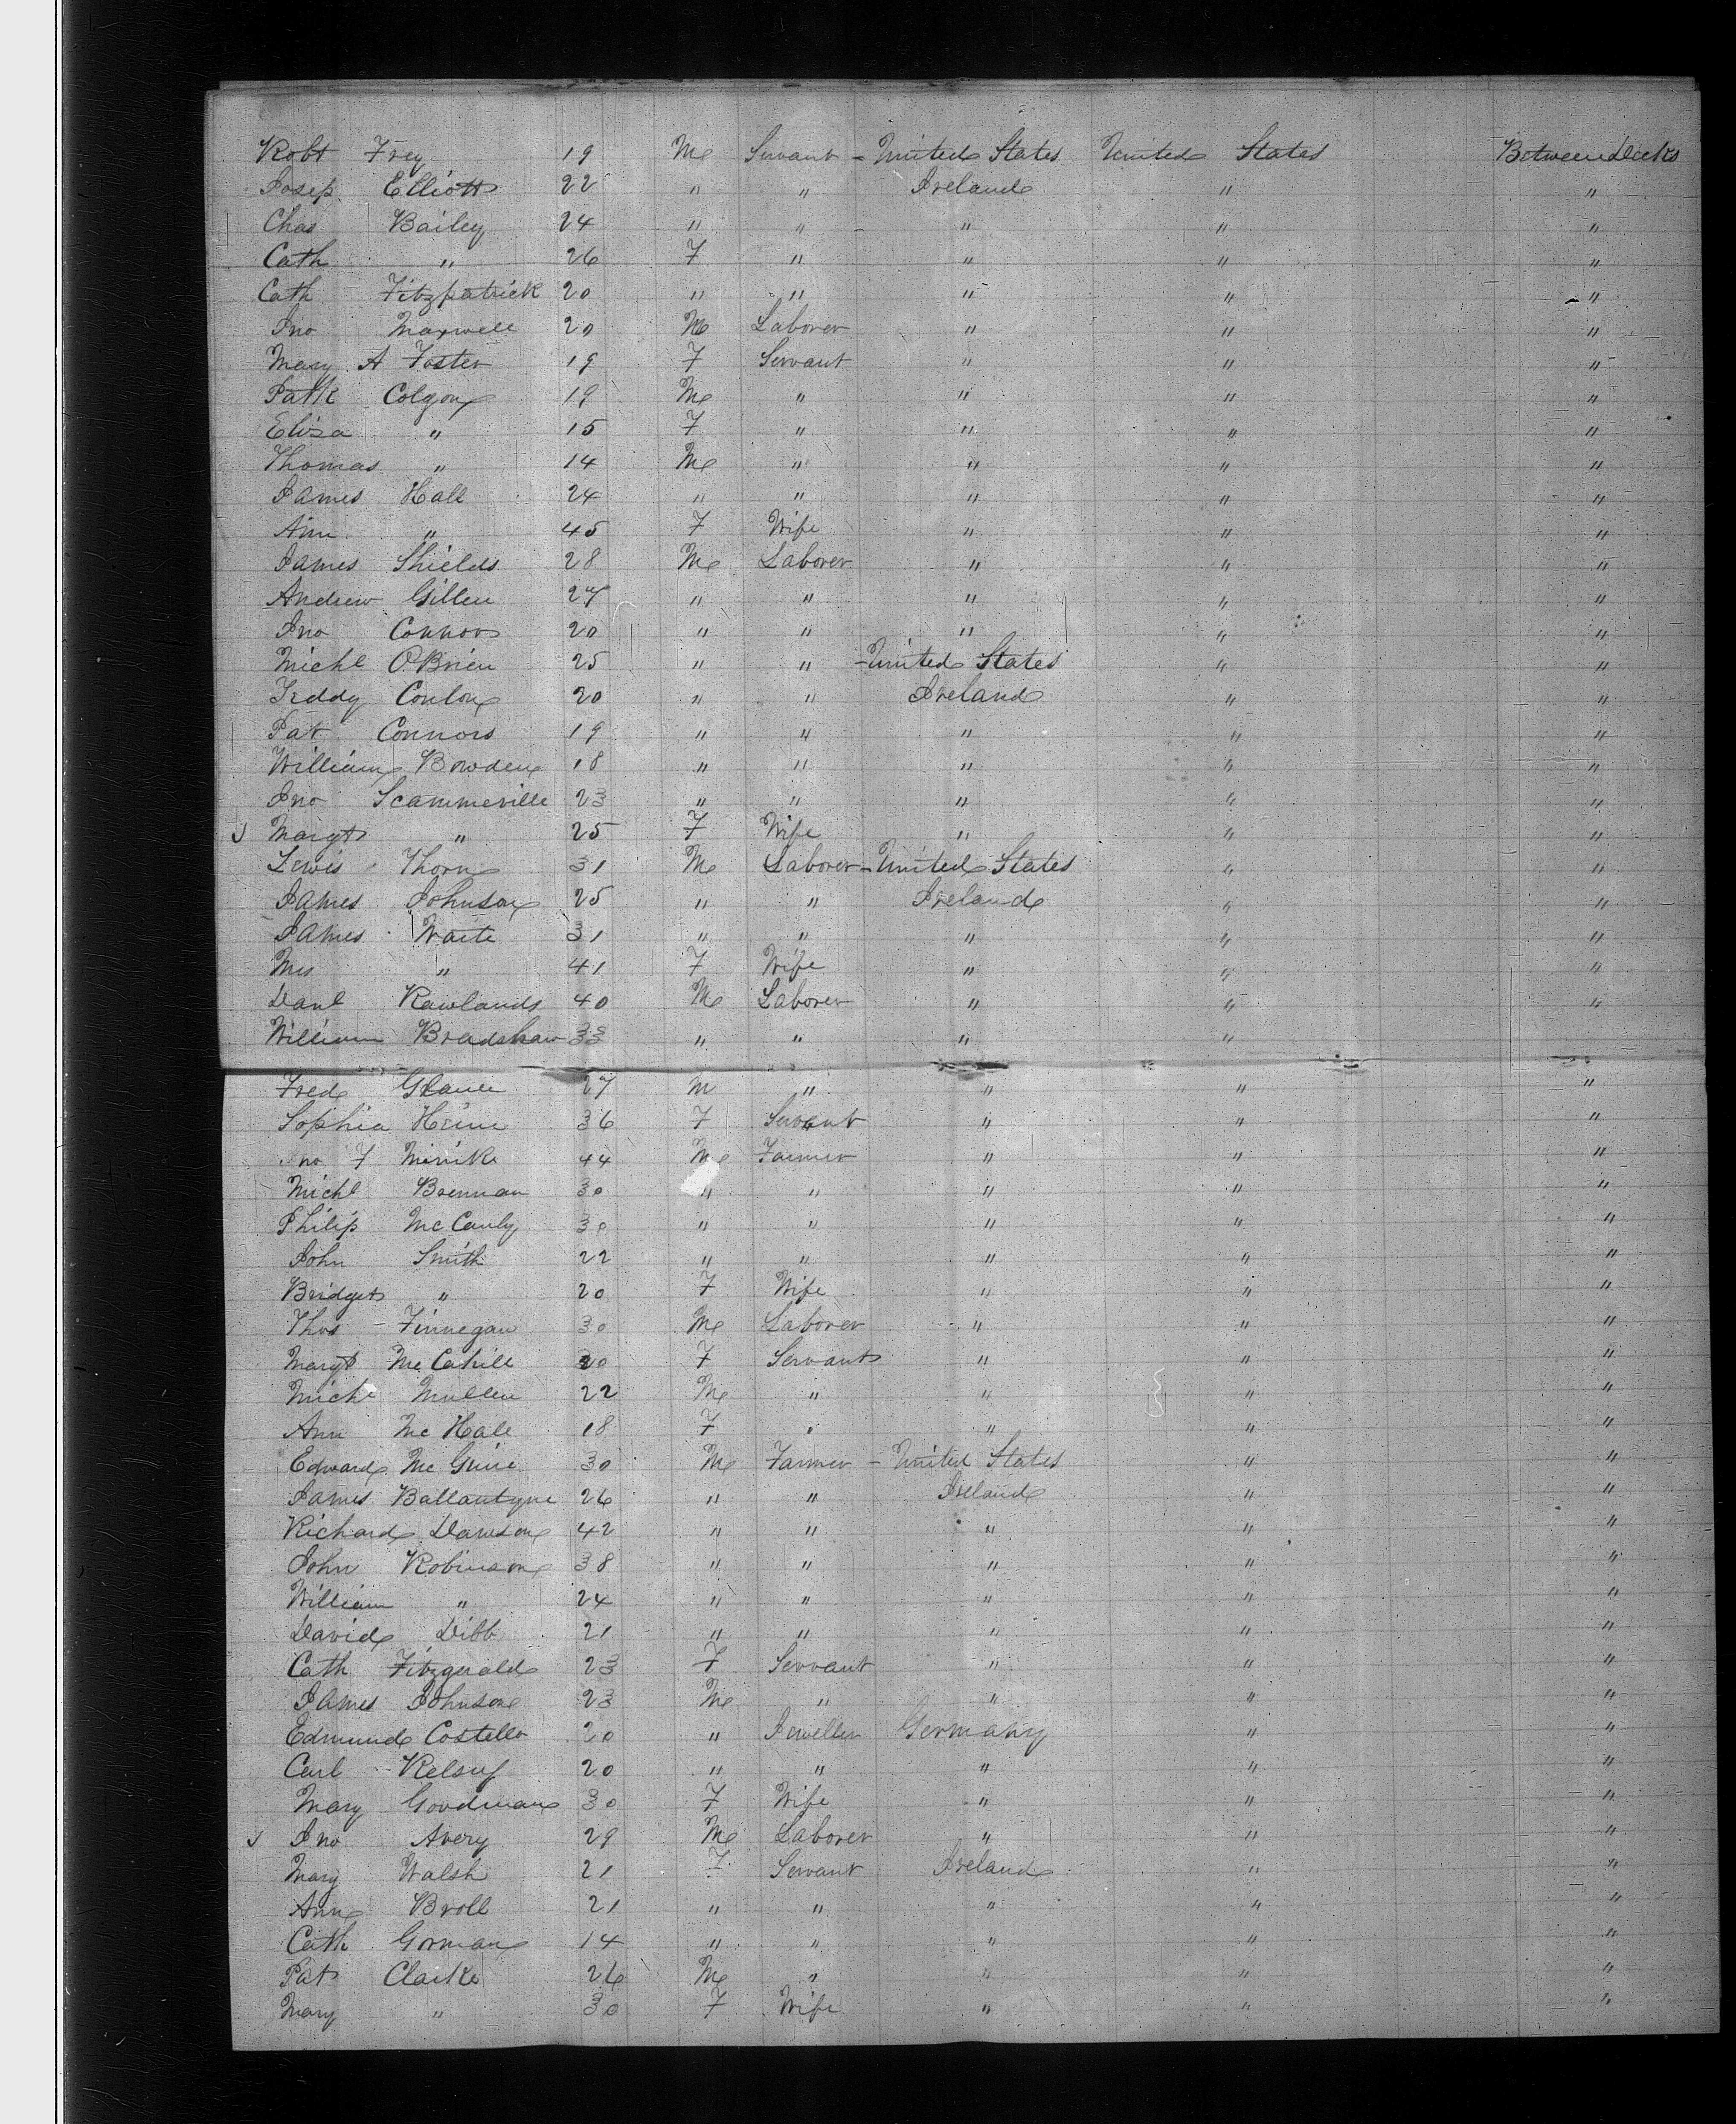 Robt Frey 19 M Servant - United States United States Between Decks
Josep Elliott 22 " " Ireland " "
Chas Bailey 24 " " " " "
Cath " 26 F " " " "
Cath Fitzpatrick 20 " " " " "
Jno Maxwell 20 M Laborer " " "
Mary A Foster 19 F Servant " " "
Patk Colgon 19 M " " " "
Eliza " 15 F " " " "
Thomas " 14 M " " " "
James Hall 24 " " " " "
Ann " 45 F Wife " " "
James Shields 28 M Laborer " " "
Andrew Gillen 27 " " " " "
Jno Connors 20 " " " " "
Michl O'Brien 25 " " - United States " "
Teddy Conlon 20 " " Ireland " "
Pat Connors 19 " " " " "
William Bowden 18 " " " " "
Jno Scammeville 23 " " " " "
Margt " 25 F Wife " " "
Lewis Thorn 31 M Laborer - United States " "
James Johnson 25 " " Ireland " "
James Waite 31 " " " " "
Mrs " 41 F Wife " " "
Danl Rawlands 40 M Laborer " " "
William Bradshaw 33 " " " "
Fred 27 M " " " "
Sophia Heine 36 F Servant " " "
Jno F Minike 44 M Farmer " " "
Michl Brennan 30 " " " " "
Philip McCauly 30 " " " " "
John Smith 22 " " " " "
Bridget " 20 F Wife " " "
Thos - Finnegan 30 M Laborer " " "
Margt McCahill 20 F Servant " " "
Michl Mullen 22 M " " " "
Ann McHale 18 F " " " "
Edward McGuire 30 M Farmer - United States " "
James Ballantyne 26 " " Ireland " "
Richard Dawson 42 " " " " "
John Robinson 38 " " " " "
William " 24 " " " " "
David Dibb 21 " " " " "
Cath Fitzgerald 23 F Servant " " "
James Johnson 23 M " " " "
Edmund Costello 20 " Jeweller Germany " "
Carl 20 " " " " "
Mary Goodman 30 F Wife " " "
Jno Avery 29 M Laborer " " "
Mary Walsh 21 F Servant Ireland " "
Ann Broll 21 " " " " "
Cath Gorman 14 " " " " "
Pat Clarke 26 M " " " "
Mary " 30 F Wife " " "